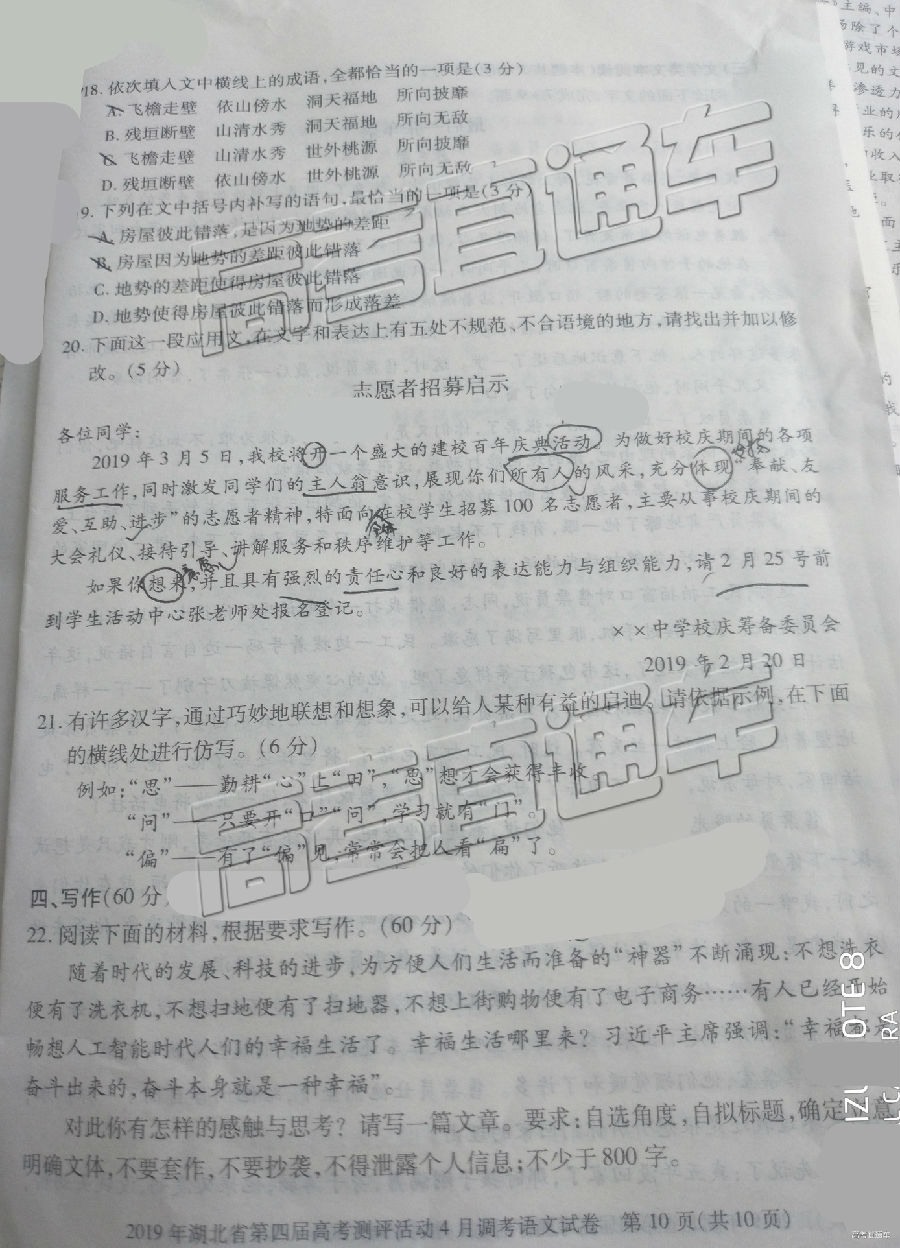 18. 依次填入文中横线上的成语,全都恰当的一项是(3分)
A. 飞檐走壁 依山傍水 洞天福地 所向披靡
B. 残垣断壁 山清水秀 洞天福地 所向无敌
C. 飞檐走壁 山清水秀 世外桃源 所向披靡
D. 残垣断壁 依山傍水 世外桃源 所向无敌
9. 下列在文中括号内补写的语句,最恰当的一项是(3分)
A. 房屋彼此错落,是因为地势的差距
B. 房屋因为地势的差距彼此错落
C. 地势的差距使得房屋彼此错落
D. 地势使得房屋彼此错落而形成落差
20. 下面这一段应用文,在文字和表达上有五处不规范、不合语境的地方,请找出并加以修
改。(5分)
志愿者招募启示
各位同学:
2019年3月5日,我校将开一个盛大的建校百年庆典活动。为做好校庆期间的各项
服务工作,同时激发同学们的主人翁意识,展现你们所有人的风采,充分体现“奉献、友
爱、互助、进步”的志愿者精神,特面向在校学生招募100名志愿者,主要从事校庆期间的
大会礼仪、接待引导、讲解服务和秩序维护等工作。
如果你想来,并且具有强烈的责任心和良好的表达能力与组织能力,请2月25号前
到学生活动中心张老师处报名登记。
××中学校庆筹备委员会
2019年2月20日
21. 有许多汉字,通过巧妙地联想和想象,可以给人某种有益的启迪。请依据示例,在下面
的横线处进行仿写。(6分)
例如:“思”——勤耕“心”上“田”,“思”想才会获得丰收。
“问”——只要开“口”“问”,学习就有“门”。
“偏”——有了“偏”见,常常会把人看“扁”了。
四、写作(60分)
22. 阅读下面的材料,根据要求写作。(60分)
随着时代的发展、科技的进步,为方便人们生活而准备的“神器”不断涌现:不想洗衣
便有了洗衣机,不想扫地便有了扫地器,不想上街购物便有了电子商务……有人已经开始
畅想人工智能时代人们的幸福生活了。幸福生活哪里来?习近平主席强调:“幸福都是
奋斗出来的,奋斗本身就是一种幸福”。
对此你有怎样的感触与思考?请写一篇文章。要求:自选角度,自拟标题,确定立意
明确文体,不要套作,不要抄袭,不得泄露个人信息;不少于800字。
2019年湖北省第四届高考测评活动4月调考语文试卷 第10页(共10页)
高考直通车
高考直通车